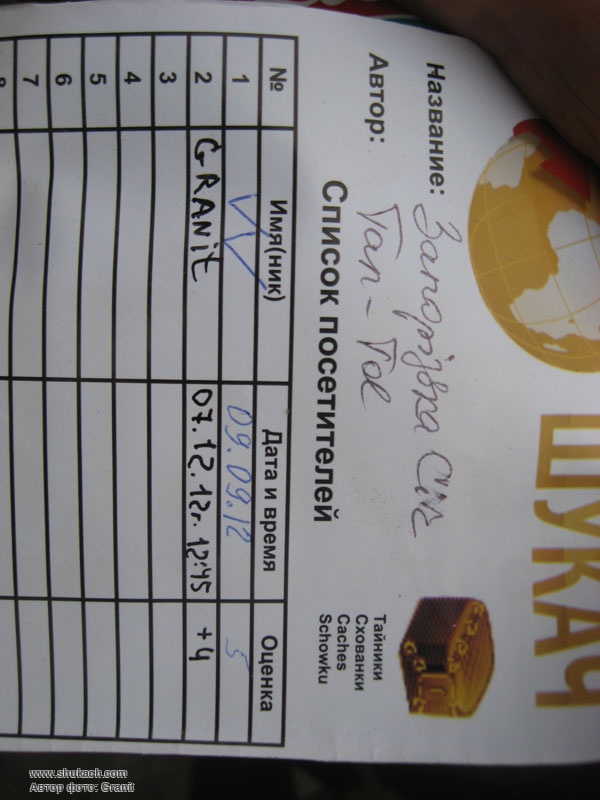 ШУКАЧ
Тайники
Схованки
Caches
Schowku
Название: Запорізька Січ
Автор: Тал-Тое
Список посетителей
№ Имя(ник) Дата и время Оценка
1 09.09.12 5
2 GRANit 07.12.12г. 12:45 +4
3
4
5
6
7
8
www.shukach.com
Автор фото: Granit